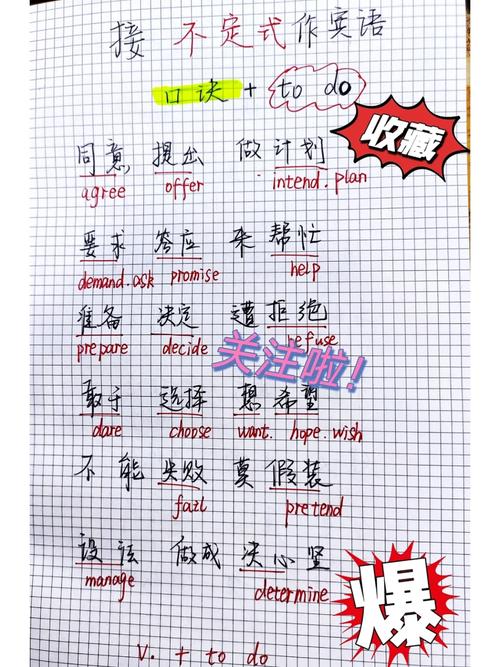 接 不定式作宾语
口诀 + to do
收藏
同意 提出 做计划
agree offer intend.plan
要求 答应 来帮忙
demand.ask promise help
准备 决定 遭拒绝
prepare decide refuse
关注啦!
敢于 选择 想希望
dare choose want. hope.wish
不能失败 莫假装
fail pretend
设法 做成 决心坚
manage determine
爆
V. + to do